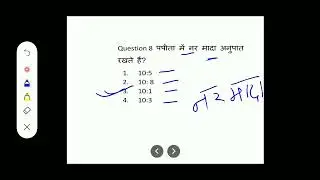 Question 8 पपीता में नर मादा अनुपात
रखते है?
1. 10:5
2. 10:8
3. 10:1
4. 10:3
नर मादा